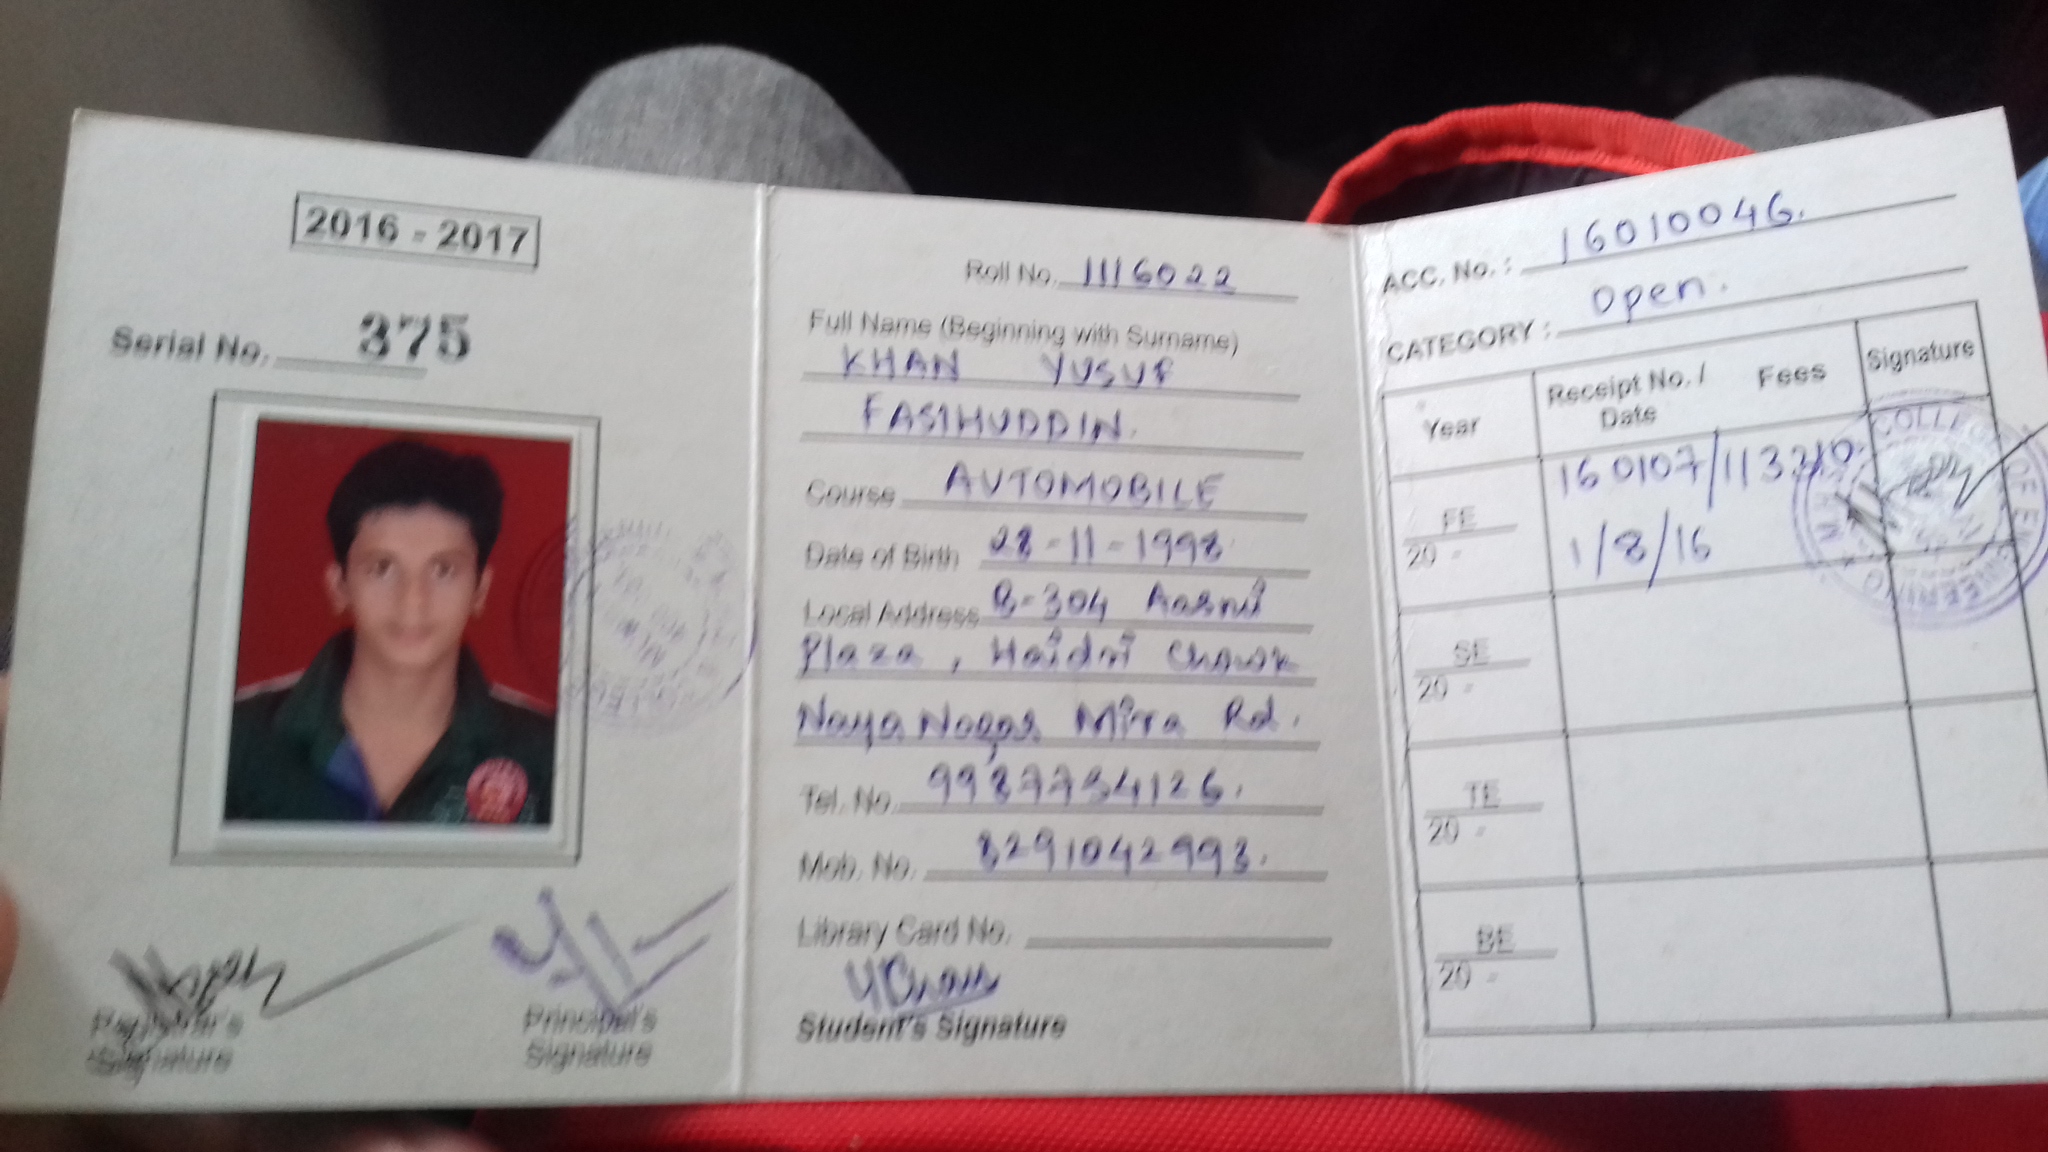 2016 - 2017
Serial No. 375
Registrar's
Signature
Principal's
Signature
Roll No. 1116022
Full Name (Beginning with Surname)
KHAN YUSUF
FASIHUDDIN.
Course AUTOMOBILE
Date of Birth 28-11-1998
Local Address B-304
Plaza, Haidri Chowk
Naya Nagar Mira Rd.
Tel. No. 9987754126.
Mob. No. 8291042993.
Library Card No.
Student's Signature
ACC. No. : 16010046.
CATEGORY : Open.
Year Receipt No. / Date Fees Signature
FE
20 -
160107/113210.
1/8/16
SE
20 -
TE
20 -
BE
20 -
COLLEGE OF ENGINEERING